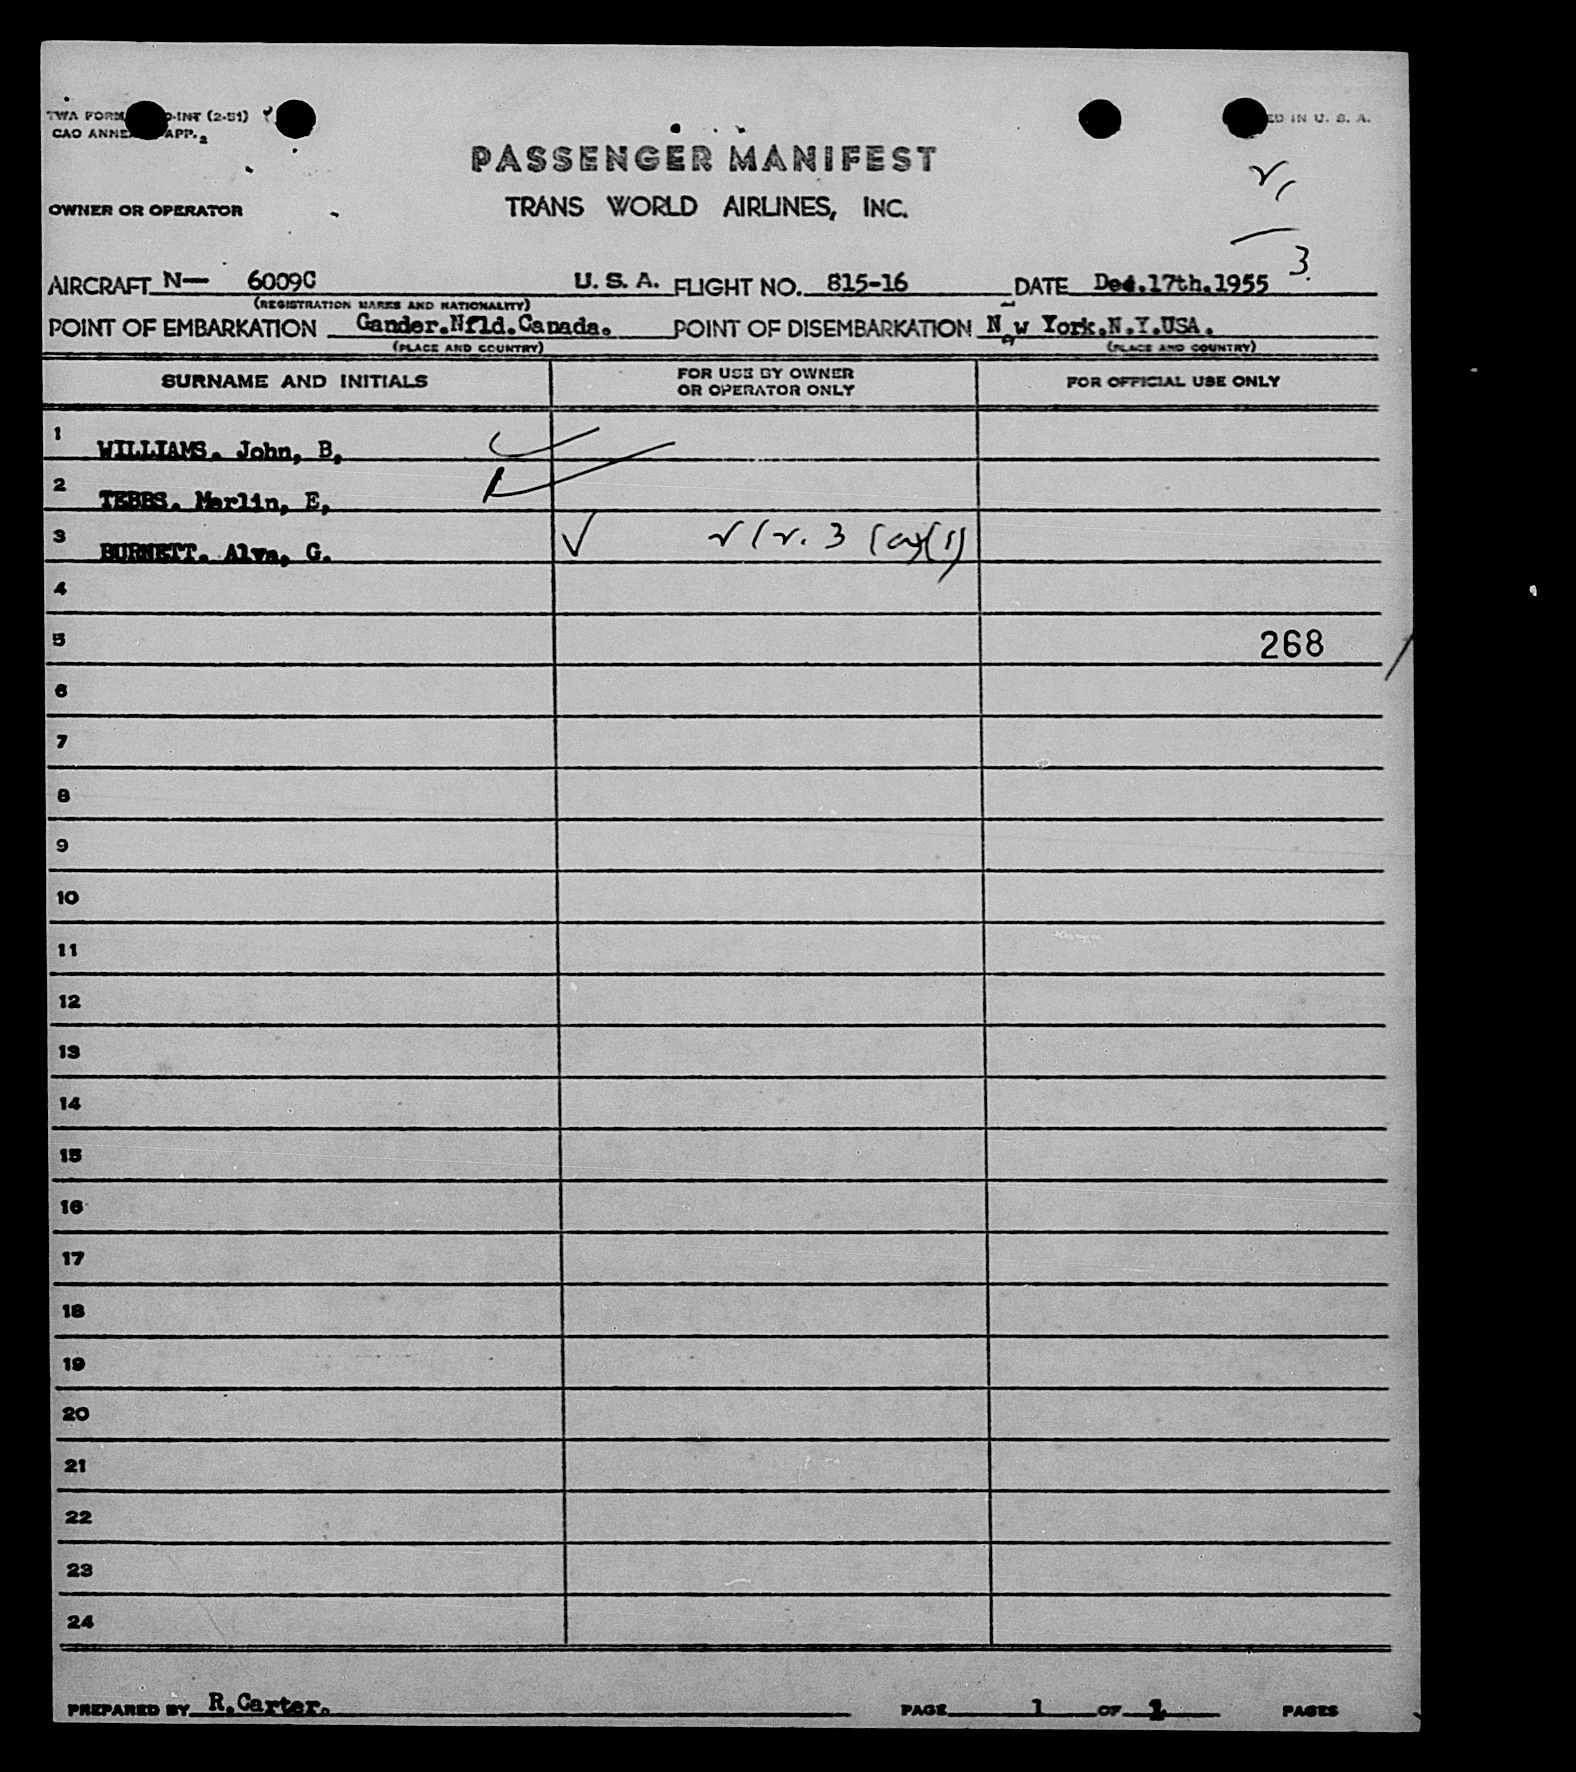 TWA FORM -INT (2-51)
CAO ANNEX APP. 2
ED IN U. S. A.
PASSENGER MANIFEST
OWNER OR OPERATOR TRANS WORLD AIRLINES, INC.
3.
AIRCRAFT N— 6009C U. S. A. FLIGHT NO. 815-16 DATE Dec.17th.1955
(REGISTRATION MARKS AND NATIONALITY)
POINT OF EMBARKATION Gander.Nfld.Canada. POINT OF DISEMBARKATION New York.N.Y.USA.
(PLACE AND COUNTRY) (PLACE AND COUNTRY)
SURNAME AND INITIALS FOR USE BY OWNER OR OPERATOR ONLY FOR OFFICIAL USE ONLY
1 WILLIAMS. John, B,
2 TEBBS. Merlin, E,
3 BURNETT. Alva, G.
4
5 268
6
7
8
9
10
11
12
13
14
15
16
17
18
19
20
21
22
23
24
PREPARED BY R.Carter. PAGE 1 OF 1 PAGES